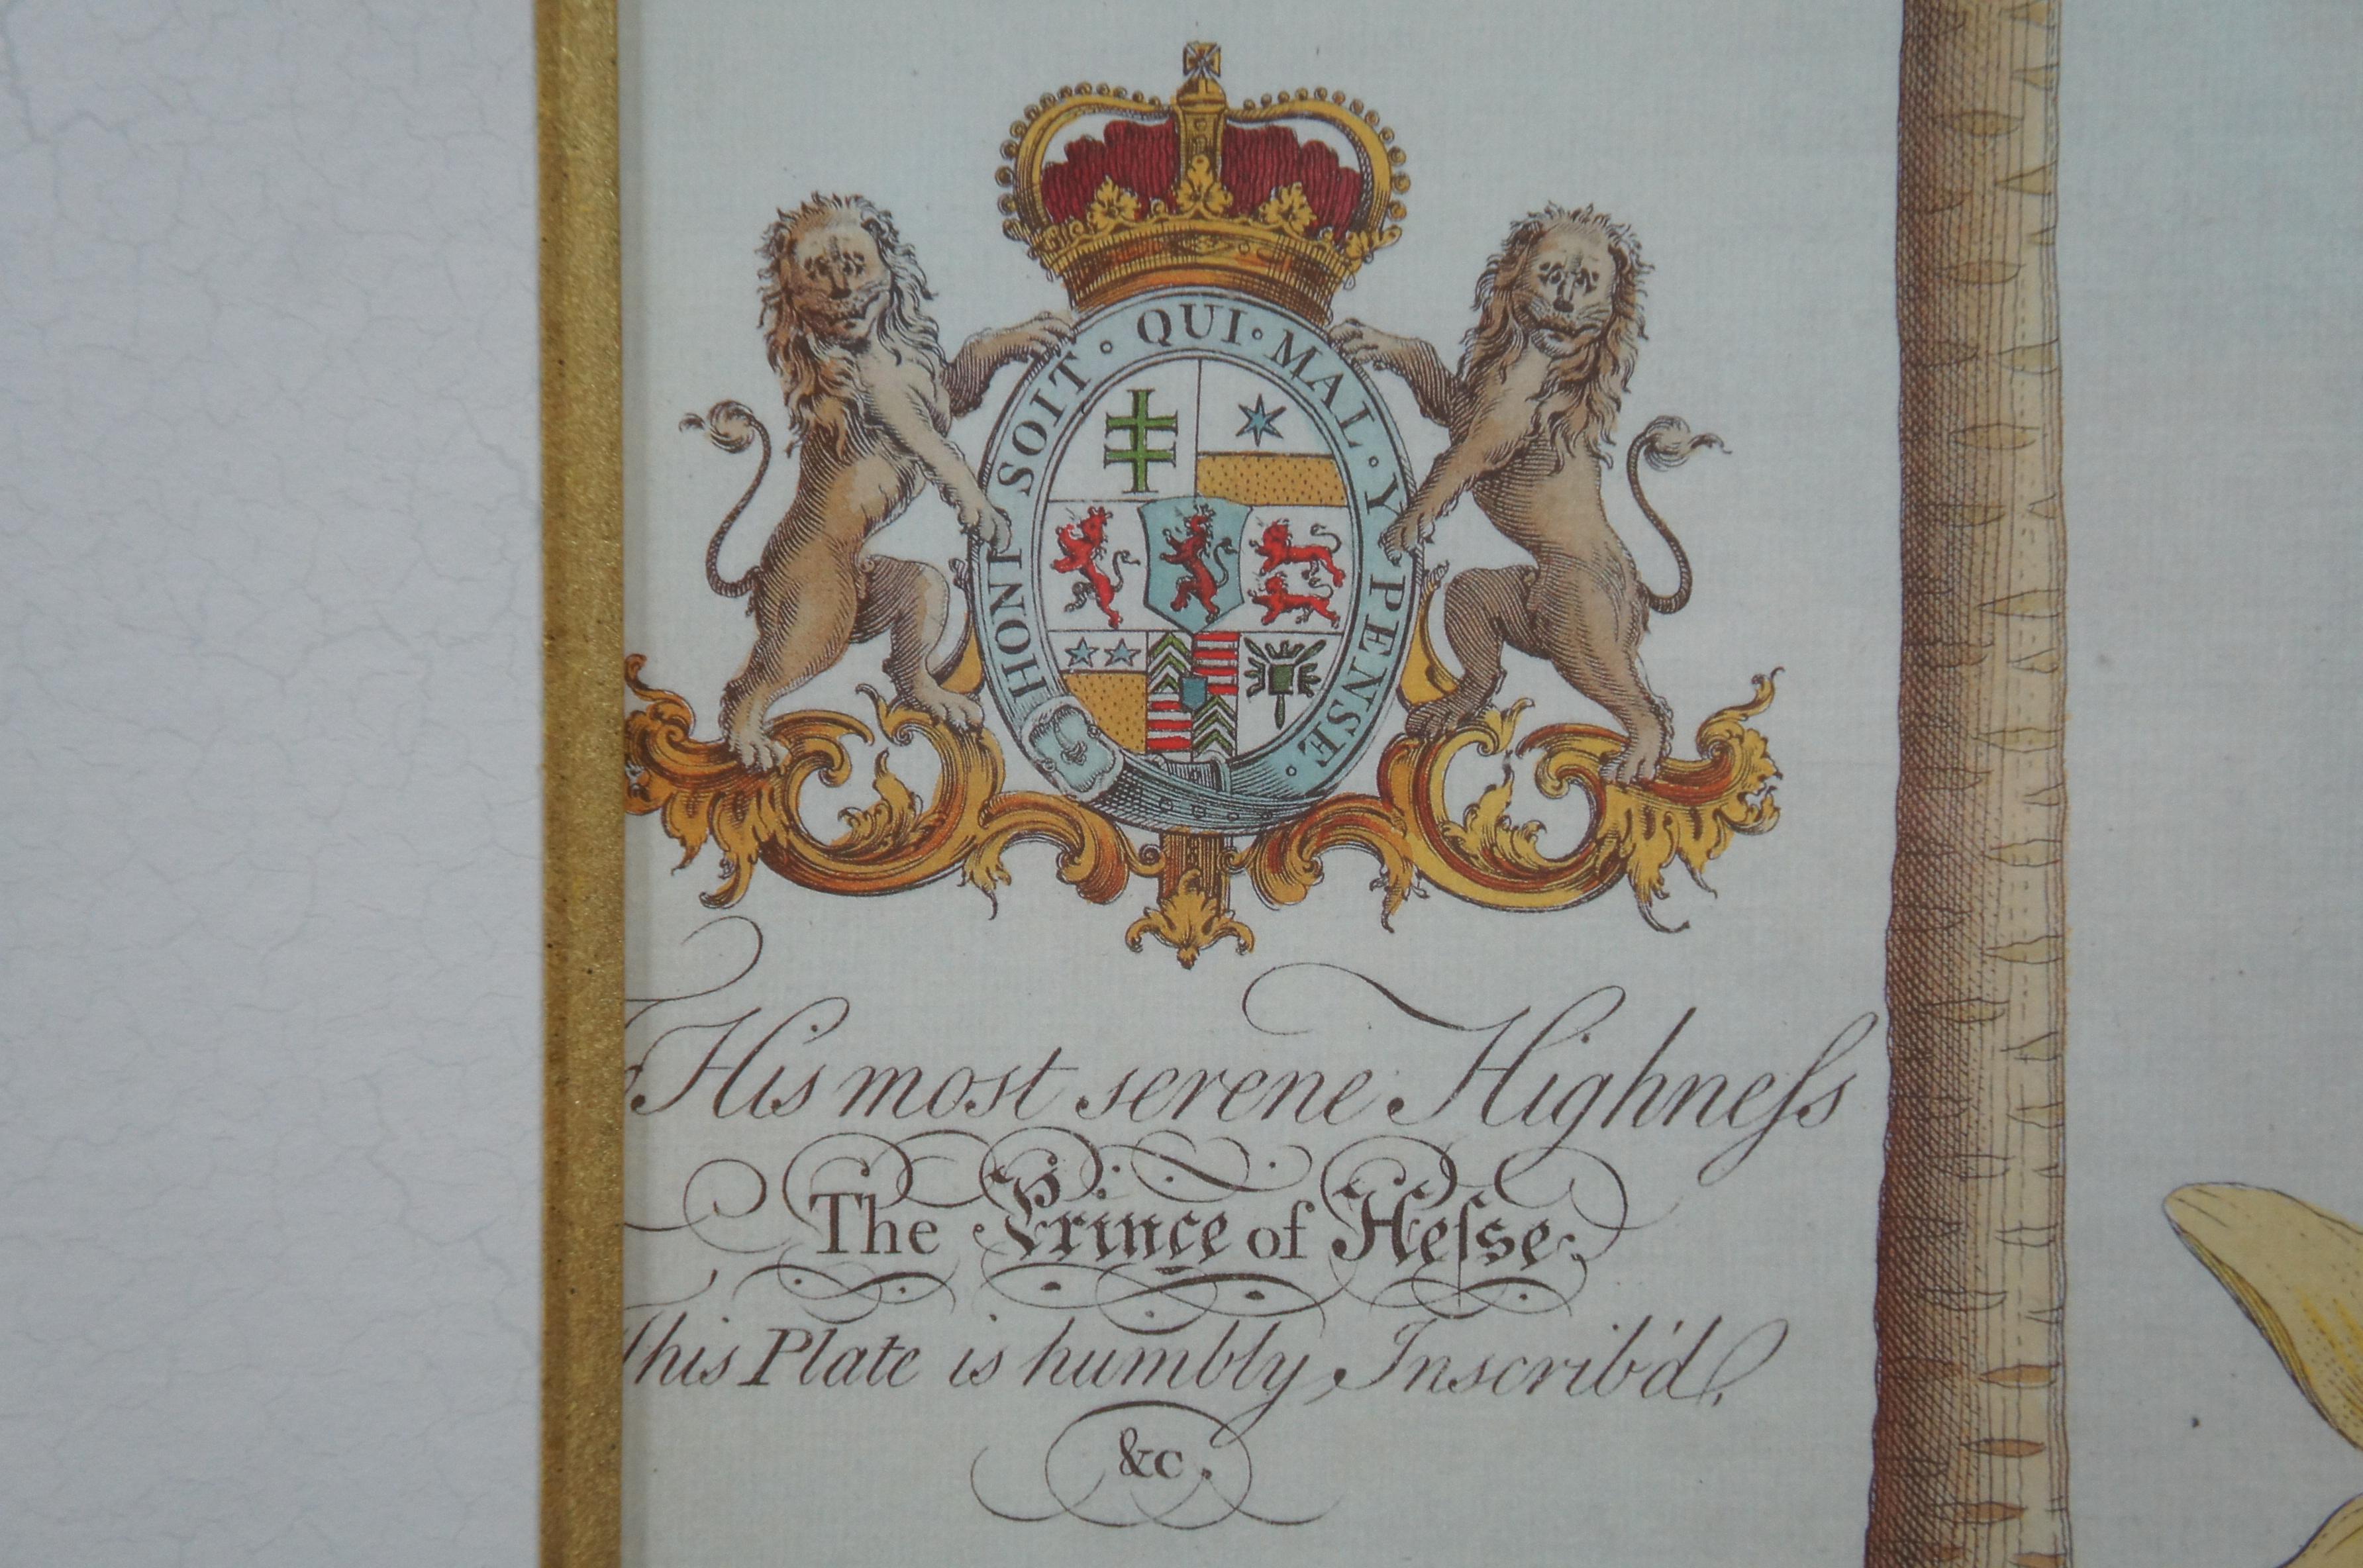 HONI SOIT · QUI · MAL · Y · PENSE ·
His most serene Highneſs
The Prince of Heſse
This Plate is humbly Inscrib'd,
&c.